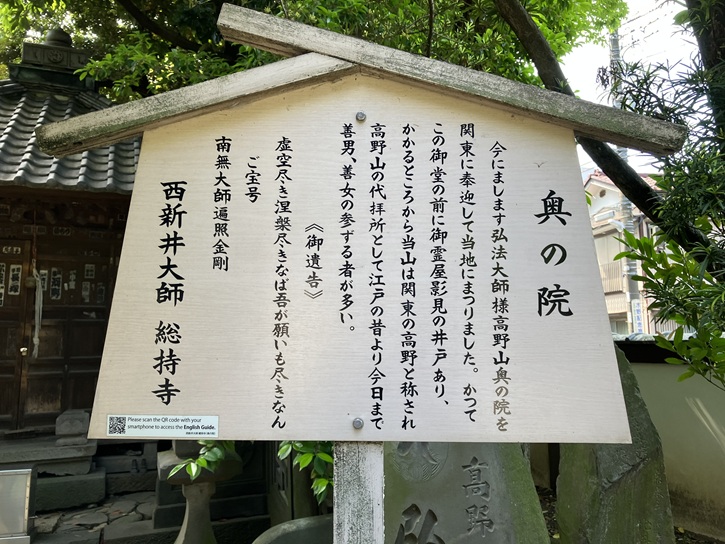 奥の院
今にまします弘法大師様高野山奥の院を
関東に奉迎して当地にまつりました。かつて
この御堂の前に御霊屋影見の井戸あり、
かかるところから当山は関東の高野と称され
高野山の代拝所として江戸の昔より今日まで
善男、善女の参ずる者が多い。
《御遺告》
虚空尽き涅槃尽きなば吾が願いも尽きなん
ご宝号
南無大師遍照金剛
西新井大師 総持寺
Please scan the QR code with your
smartphone to access the English Guide.
高野